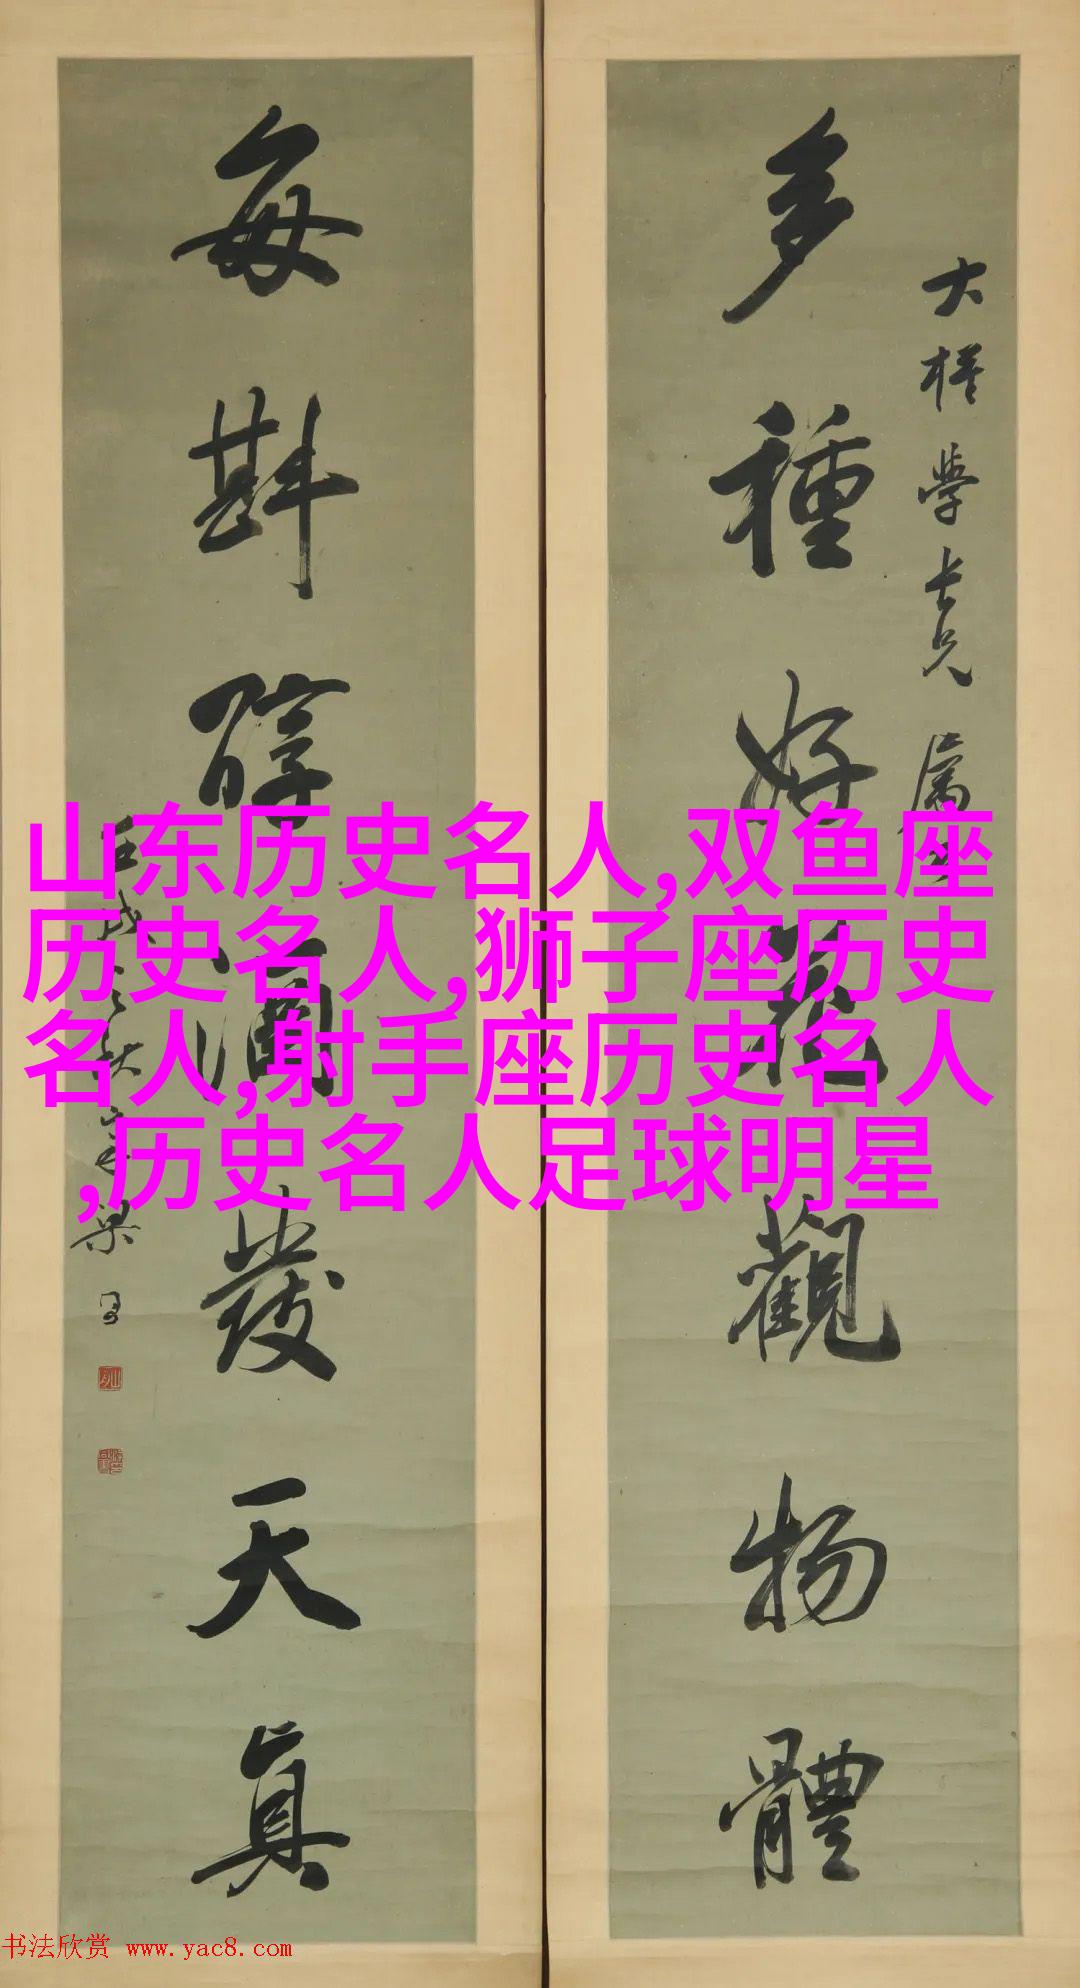 多種好花觀物體
大樁學長兄屬
每斟醇酒發天真
梁
山东历史名人,双鱼座
历史名人,狮子座历史
名人,射手座历史名人
,历史名人足球明星
书法欣赏 www.yac8.com